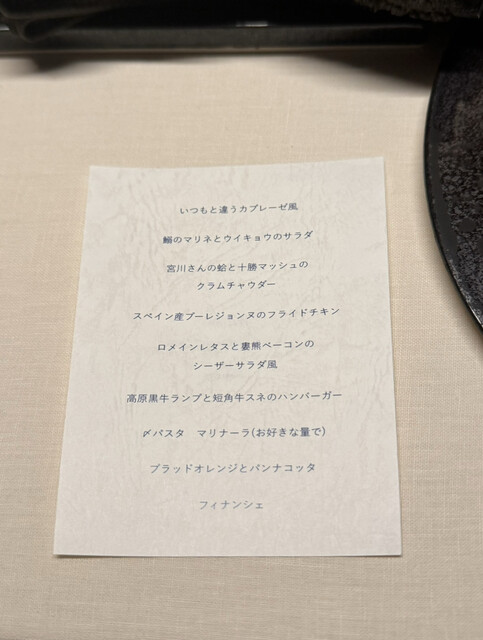 いつもと違うカプレーゼ風
鰯のマリネとウイキョウのサラダ
宮川さんの蛤と十勝マッシュの
クラムチャウダー
スペイン産プーレジョンヌのフライドチキン
ロメインレタスと婁熊ベーコンの
シーザーサラダ風
高原黒牛ランプと短角牛スネのハンバーガー
〆パスタ　マリナーラ(お好きな量で)
ブラッドオレンジとパンナコッタ
フィナンシェ